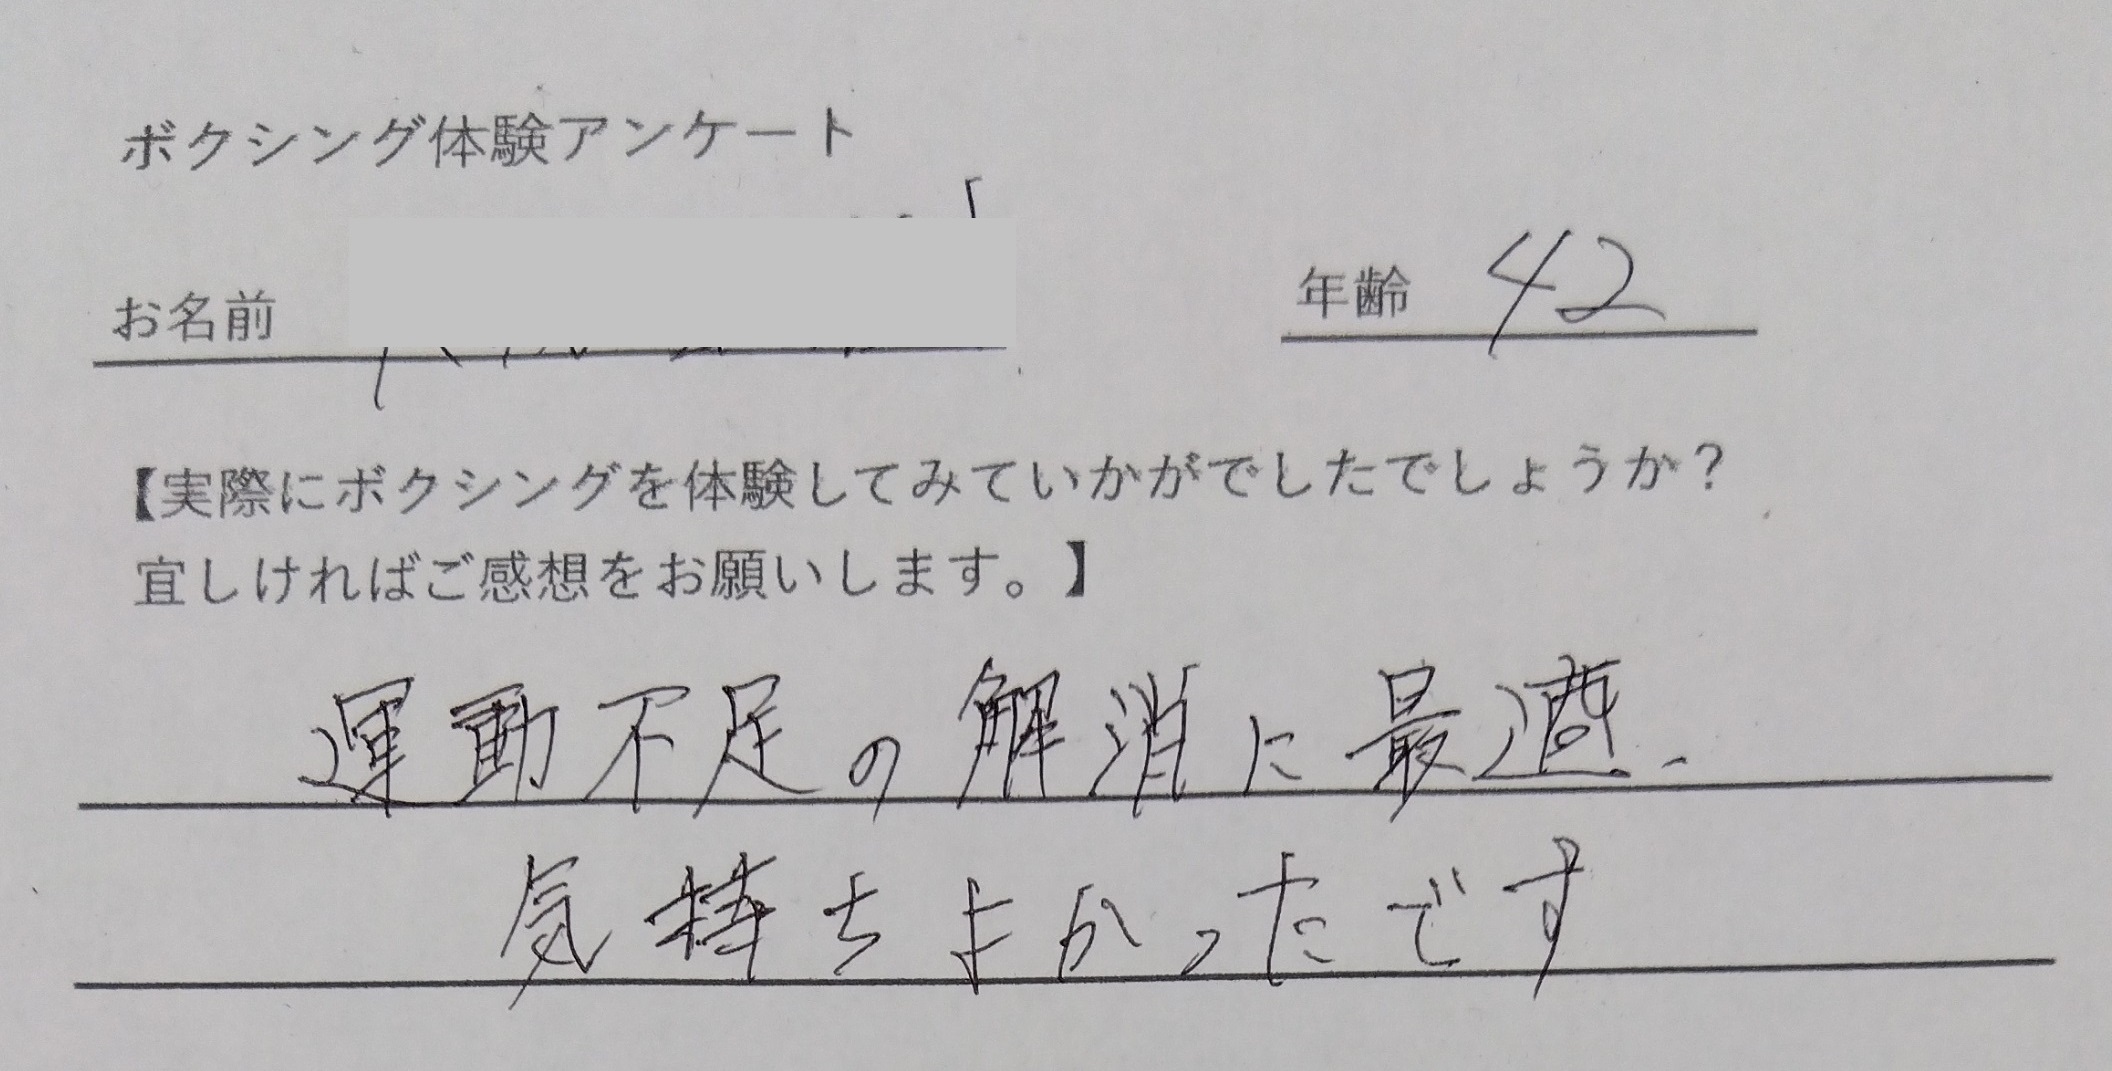 ボクシング体験アンケート
お名前 年齢 42
【実際にボクシングを体験してみていかがでしたでしょうか?
宜しければご感想をお願いします。】
運動不足の解消に最適、
気持ちよかったです